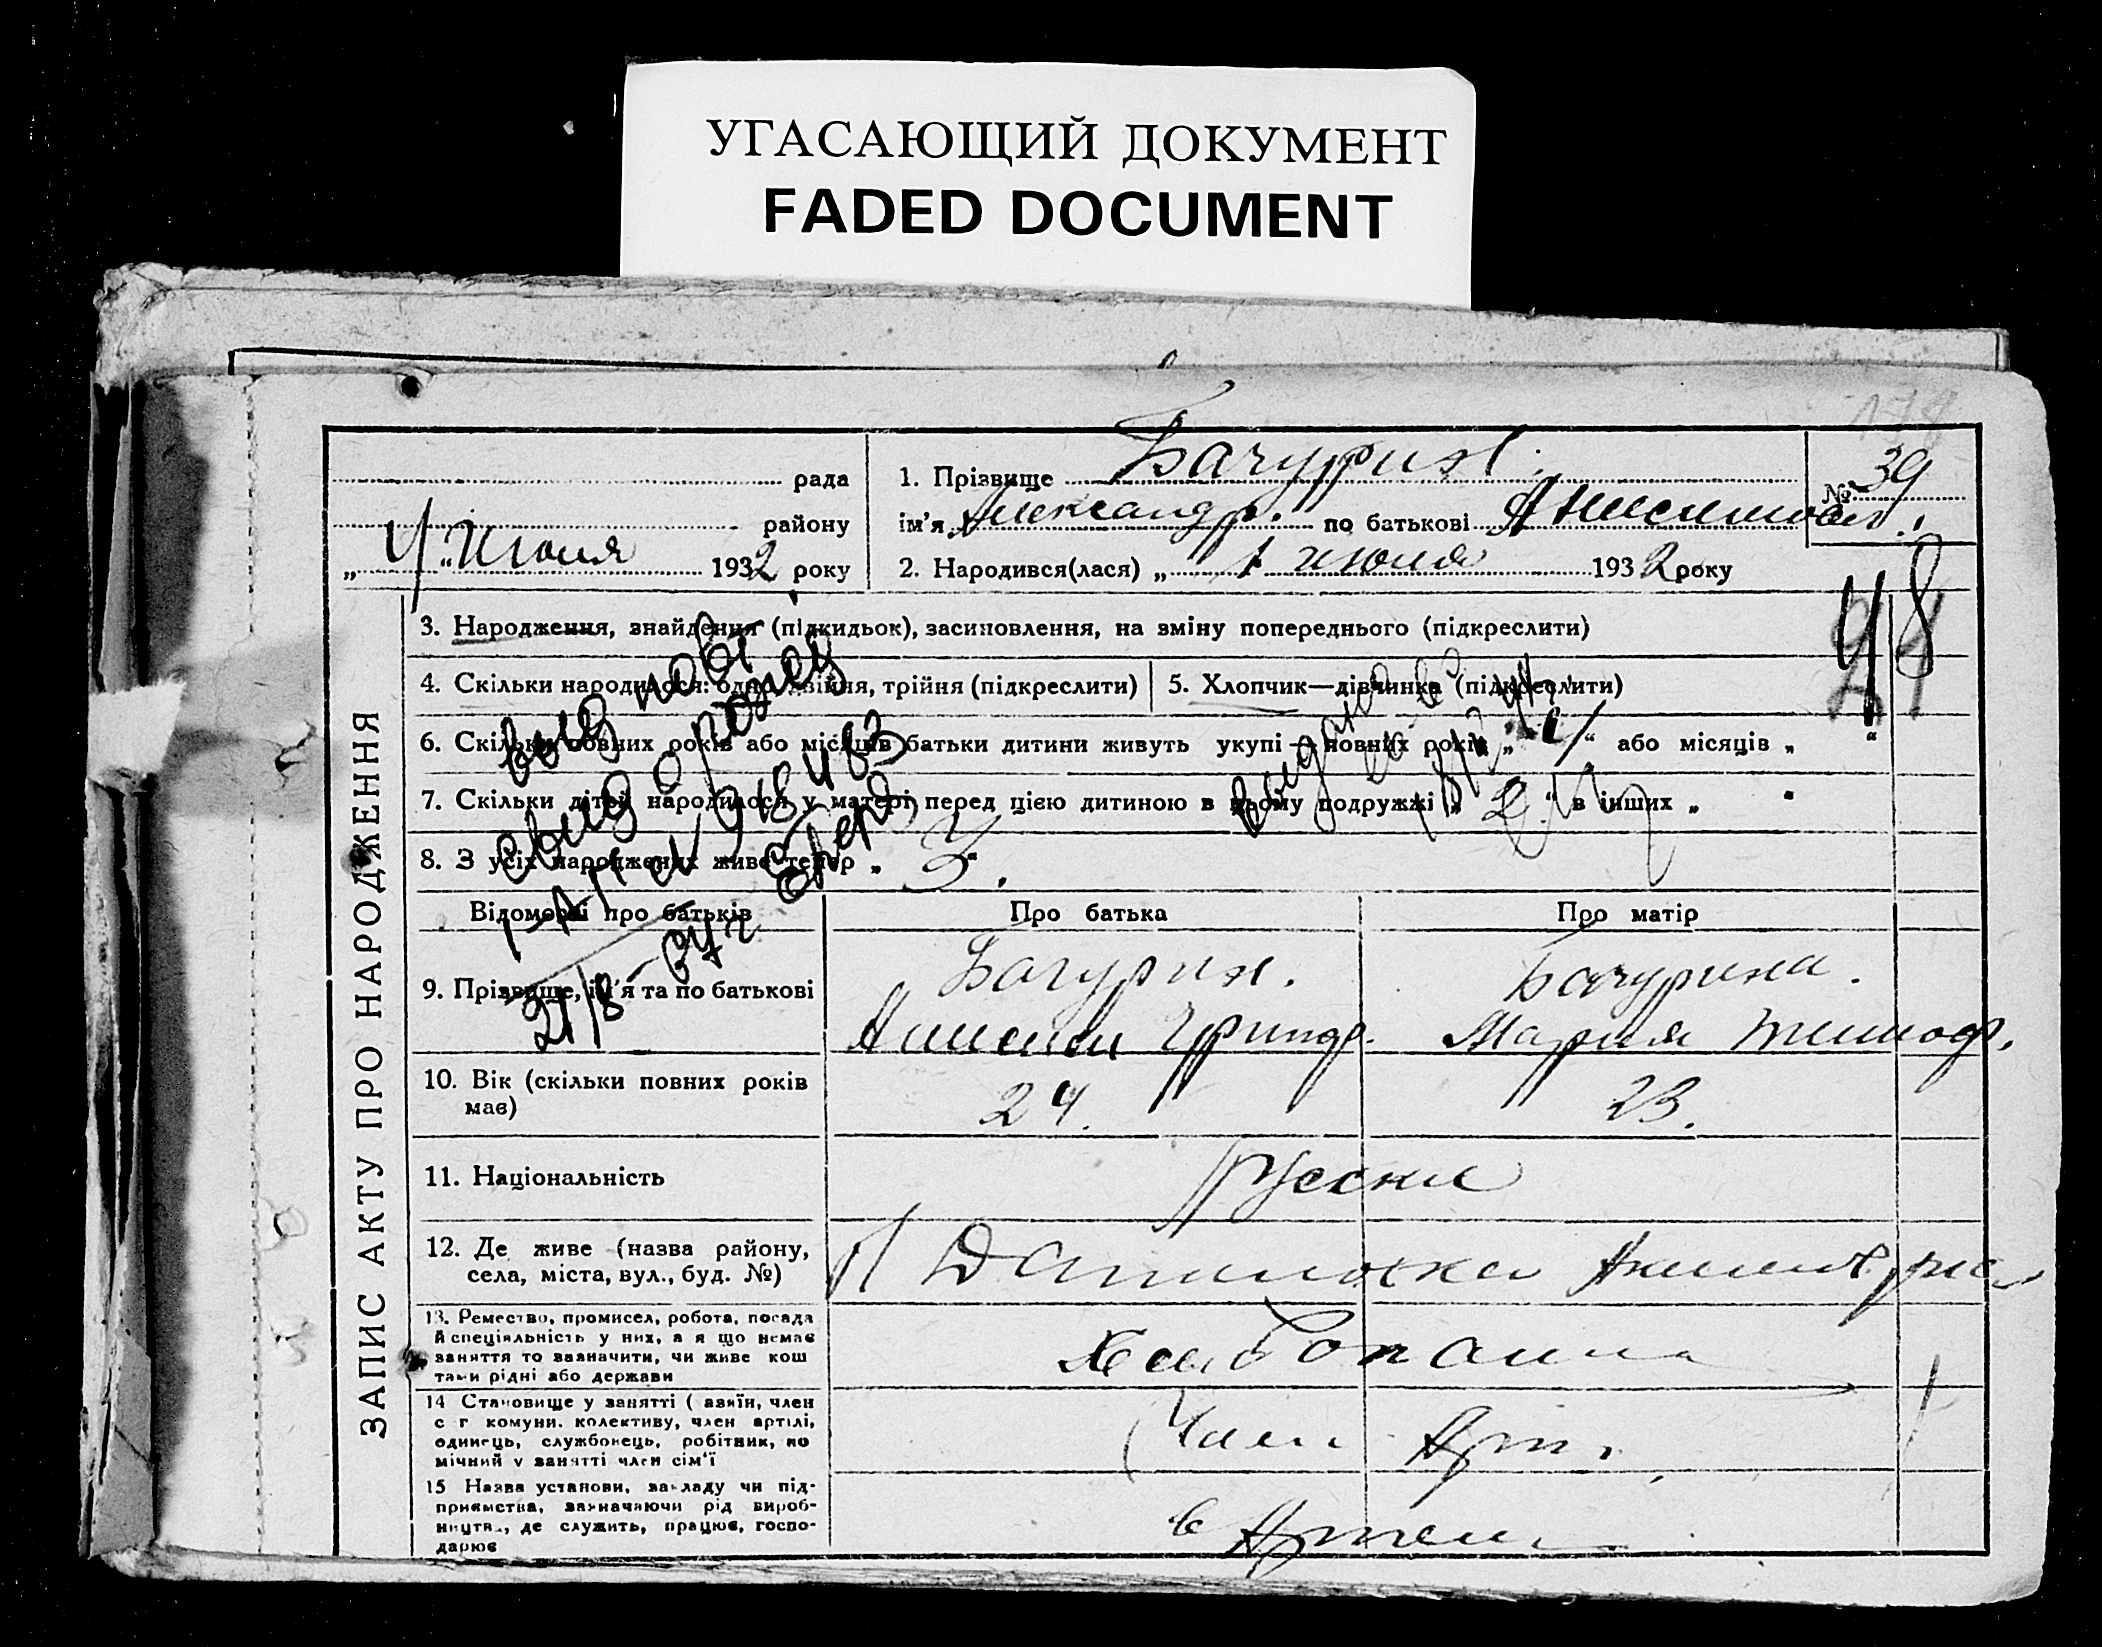 УГАСАЮЩИЙ ДОКУМЕНТ
FADED DOCUMENT
рада
району
„ 4 “ Июля 1932 року
1. Прізвище Бачурин
ім'я Александр. по батькові Анисимов.
2. Народився(лася) „ 1 июля 1932 року
№ 39
ЗАПИС АКТУ ПРО НАРОДЖЕННЯ
3. Народження, знайдення (підкидьок), засиновлення, на зміну попереднього (підкреслити)
48
4. Скільки народилося: одно, двійня, трійня (підкреслити)
5. Хлопчик—дівчинка (підкреслити)
6. Скільки повних років або місяців батьки дитини живуть укупі — повних років „ “ або місяців „ “
7. Скільки дітей народилося у матері перед цією дитиною в цьому подружжі „ 2 “ в інших „ “
8. З усіх народжених живе тепер „ 3 “
выд
свид о рожд
21/8-37г
Відомості про батьків
Про батька
Про матір
9. Прізвище, ім'я та по батькові
Бачурин.
Бачурина.
Мария Тимоф.
10. Вік (скільки повних років має)
24.
23.
11. Національність
русские
12. Де живе (назва району,
села, міста, вул., буд. №)
13. Ремество, промисел, робота, посада
й спеціяльність у них, а я що немає
заняття то зазначити, чи живе кош
тами рідні або держави
14 Становище у занятті ( авяїн, член
с г комуни. колективу, член артілі,
одинець, службовець, робітник, по
мічний у занятті член сім'ї
Член Арт.
15 Назва установи, закладу чи під-
приємства, зазначаючи рід вироб-
ництва, де служить, працює, госпо-
дарює
в Артели